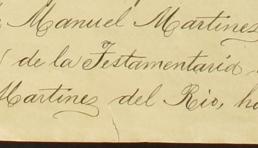 Manuel Martinez
de la Testamentaria
Martinez del Rio, ha